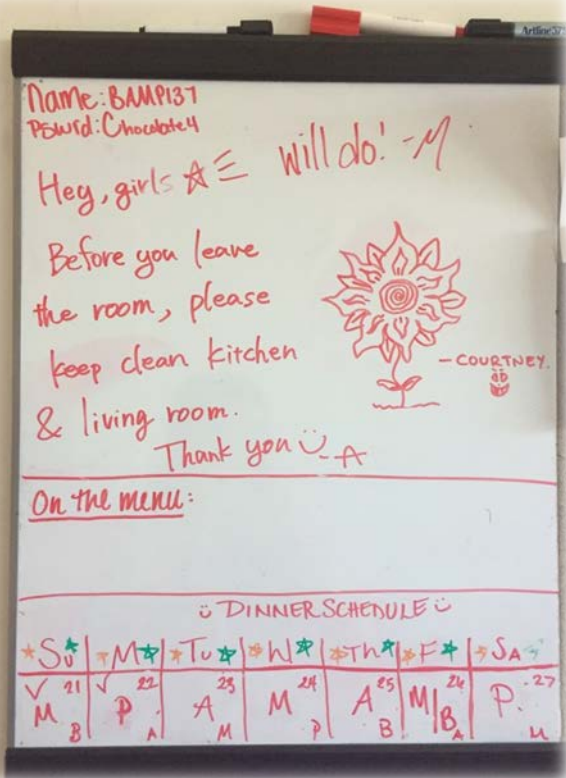 Artline 577
Name: BAMP137
Pswrd: Chocolate4
Hey, girls
will do! -M
Before you leave
the room, please
keep clean kitchen
& living room.
Thank you -A
-COURTNEY.
On the menu:
DINNER SCHEDULE
Su M Tu W Th F SA
21 22 23 24 25 26 27
M P A M A M/B P.
B A M P B A M